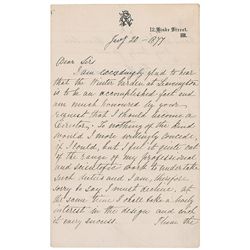 12, Hinde Street,
W.
Jany 20 - 1877
Dear Sir
I am exceedingly glad to hear
that the Winter Garden at Kensington
is to be an accomplished fact and
am much honoured by your
request that I should become a
Director. To nothing of the kind
would I more willingly consent
if I could, but I feel it quite out
of the range of my professional
and scientific work to undertake
such duties and I am, therefore,
sorry to say I must decline, at
the same time I shall take a lively
interest in the design and wish
it every success. Please